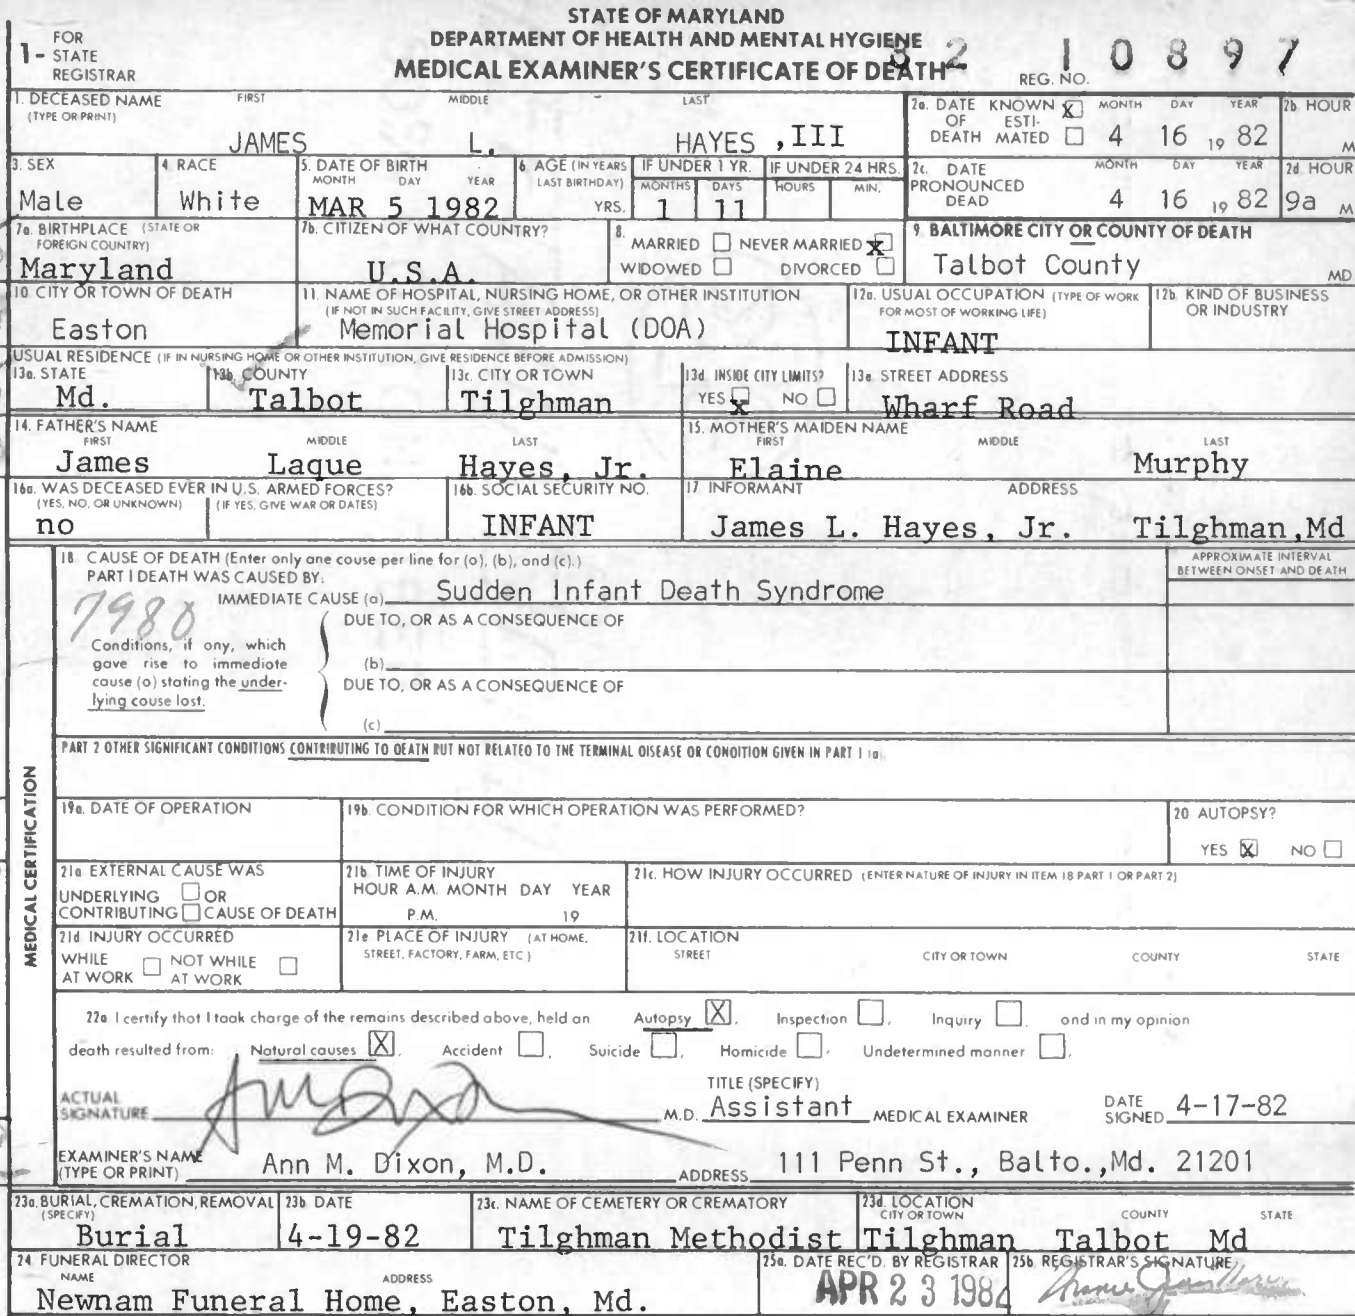 STATE OF MARYLAND
DEPARTMENT OF HEALTH AND MENTAL HYGIENE
MEDICAL EXAMINER'S CERTIFICATE OF DEATH
1- FOR STATE REGISTRAR
REG. NO. 82 10897
1. DECEASED NAME (TYPE OR PRINT) FIRST MIDDLE LAST
JAMES L. HAYES, III
2a. DATE OF DEATH KNOWN X ESTIMATED MONTH DAY YEAR
4 16 19 82
2b HOUR M
3. SEX Male
4. RACE White
5. DATE OF BIRTH MONTH DAY YEAR
MAR 5 1982
6 AGE (IN YEARS LAST BIRTHDAY) YRS.
IF UNDER 1 YR. MONTHS DAYS
1 11
IF UNDER 24 HRS. HOURS MIN.
2c. DATE PRONOUNCED DEAD MONTH DAY YEAR
4 16 19 82
2d HOUR
9a M
7a. BIRTHPLACE (STATE OR FOREIGN COUNTRY)
Maryland
7b. CITIZEN OF WHAT COUNTRY?
U.S.A.
8. MARRIED NEVER MARRIED X
WIDOWED DIVORCED
9 BALTIMORE CITY OR COUNTY OF DEATH
Talbot County MD
10 CITY OR TOWN OF DEATH
Easton
11. NAME OF HOSPITAL, NURSING HOME, OR OTHER INSTITUTION
(IF NOT IN SUCH FACILITY, GIVE STREET ADDRESS)
Memorial Hospital (DOA)
12a. USUAL OCCUPATION (TYPE OF WORK FOR MOST OF WORKING LIFE)
INFANT
12b. KIND OF BUSINESS OR INDUSTRY
USUAL RESIDENCE (IF IN NURSING HOME OR OTHER INSTITUTION, GIVE RESIDENCE BEFORE ADMISSION)
13a. STATE Md.
13b. COUNTY Talbot
13c. CITY OR TOWN Tilghman
13d. INSIDE CITY LIMITS? YES X NO
13e STREET ADDRESS Wharf Road
14. FATHER'S NAME FIRST MIDDLE LAST
James Laque Hayes, Jr.
15. MOTHER'S MAIDEN NAME FIRST MIDDLE LAST
Elaine Murphy
16a. WAS DECEASED EVER IN U.S. ARMED FORCES?
(YES, NO, OR UNKNOWN) (IF YES, GIVE WAR OR DATES)
no
16b. SOCIAL SECURITY NO.
INFANT
17 INFORMANT ADDRESS
James L. Hayes, Jr. Tilghman,Md
MEDICAL CERTIFICATION
18 CAUSE OF DEATH (Enter only one cause per line for (a), (b), and (c).)
APPROXIMATE INTERVAL BETWEEN ONSET AND DEATH
PART I DEATH WAS CAUSED BY:
IMMEDIATE CAUSE (a) Sudden Infant Death Syndrome
7980
DUE TO, OR AS A CONSEQUENCE OF
Conditions, if any, which
gave rise to immediate
cause (a) stating the under-
lying cause last.
(b)
DUE TO, OR AS A CONSEQUENCE OF
(c)
PART 2 OTHER SIGNIFICANT CONDITIONS CONTRIBUTING TO DEATH BUT NOT RELATED TO THE TERMINAL DISEASE OR CONDITION GIVEN IN PART 1 (a).
19a. DATE OF OPERATION
19b. CONDITION FOR WHICH OPERATION WAS PERFORMED?
20 AUTOPSY?
YES X NO
21a EXTERNAL CAUSE WAS
UNDERLYING OR
CONTRIBUTING CAUSE OF DEATH
21b TIME OF INJURY
HOUR A.M. MONTH DAY YEAR
P.M. 19
21c. HOW INJURY OCCURRED (ENTER NATURE OF INJURY IN ITEM 18 PART 1 OR PART 2)
21d INJURY OCCURRED
WHILE AT WORK NOT WHILE AT WORK
21e PLACE OF INJURY (AT HOME, STREET, FACTORY, FARM, ETC)
21f. LOCATION
STREET CITY OR TOWN COUNTY STATE
22a I certify that I took charge of the remains described above, held an Autopsy X, Inspection, Inquiry, and in my opinion
death resulted from: Natural causes X, Accident, Suicide, Homicide, Undetermined manner.
ACTUAL SIGNATURE M.D.
TITLE (SPECIFY)
Assistant MEDICAL EXAMINER
DATE SIGNED 4-17-82
EXAMINER'S NAME (TYPE OR PRINT) Ann M. Dixon, M.D.
ADDRESS 111 Penn St., Balto.,Md. 21201
23a. BURIAL, CREMATION, REMOVAL (SPECIFY)
Burial
23b DATE
4-19-82
23c. NAME OF CEMETERY OR CREMATORY
Tilghman Methodist
23d. LOCATION CITY OR TOWN COUNTY STATE
Tilghman Talbot Md
24 FUNERAL DIRECTOR
NAME ADDRESS
Newnam Funeral Home, Easton, Md.
25a. DATE REC'D. BY REGISTRAR
APR 23 1982
25b. REGISTRAR'S SIGNATURE